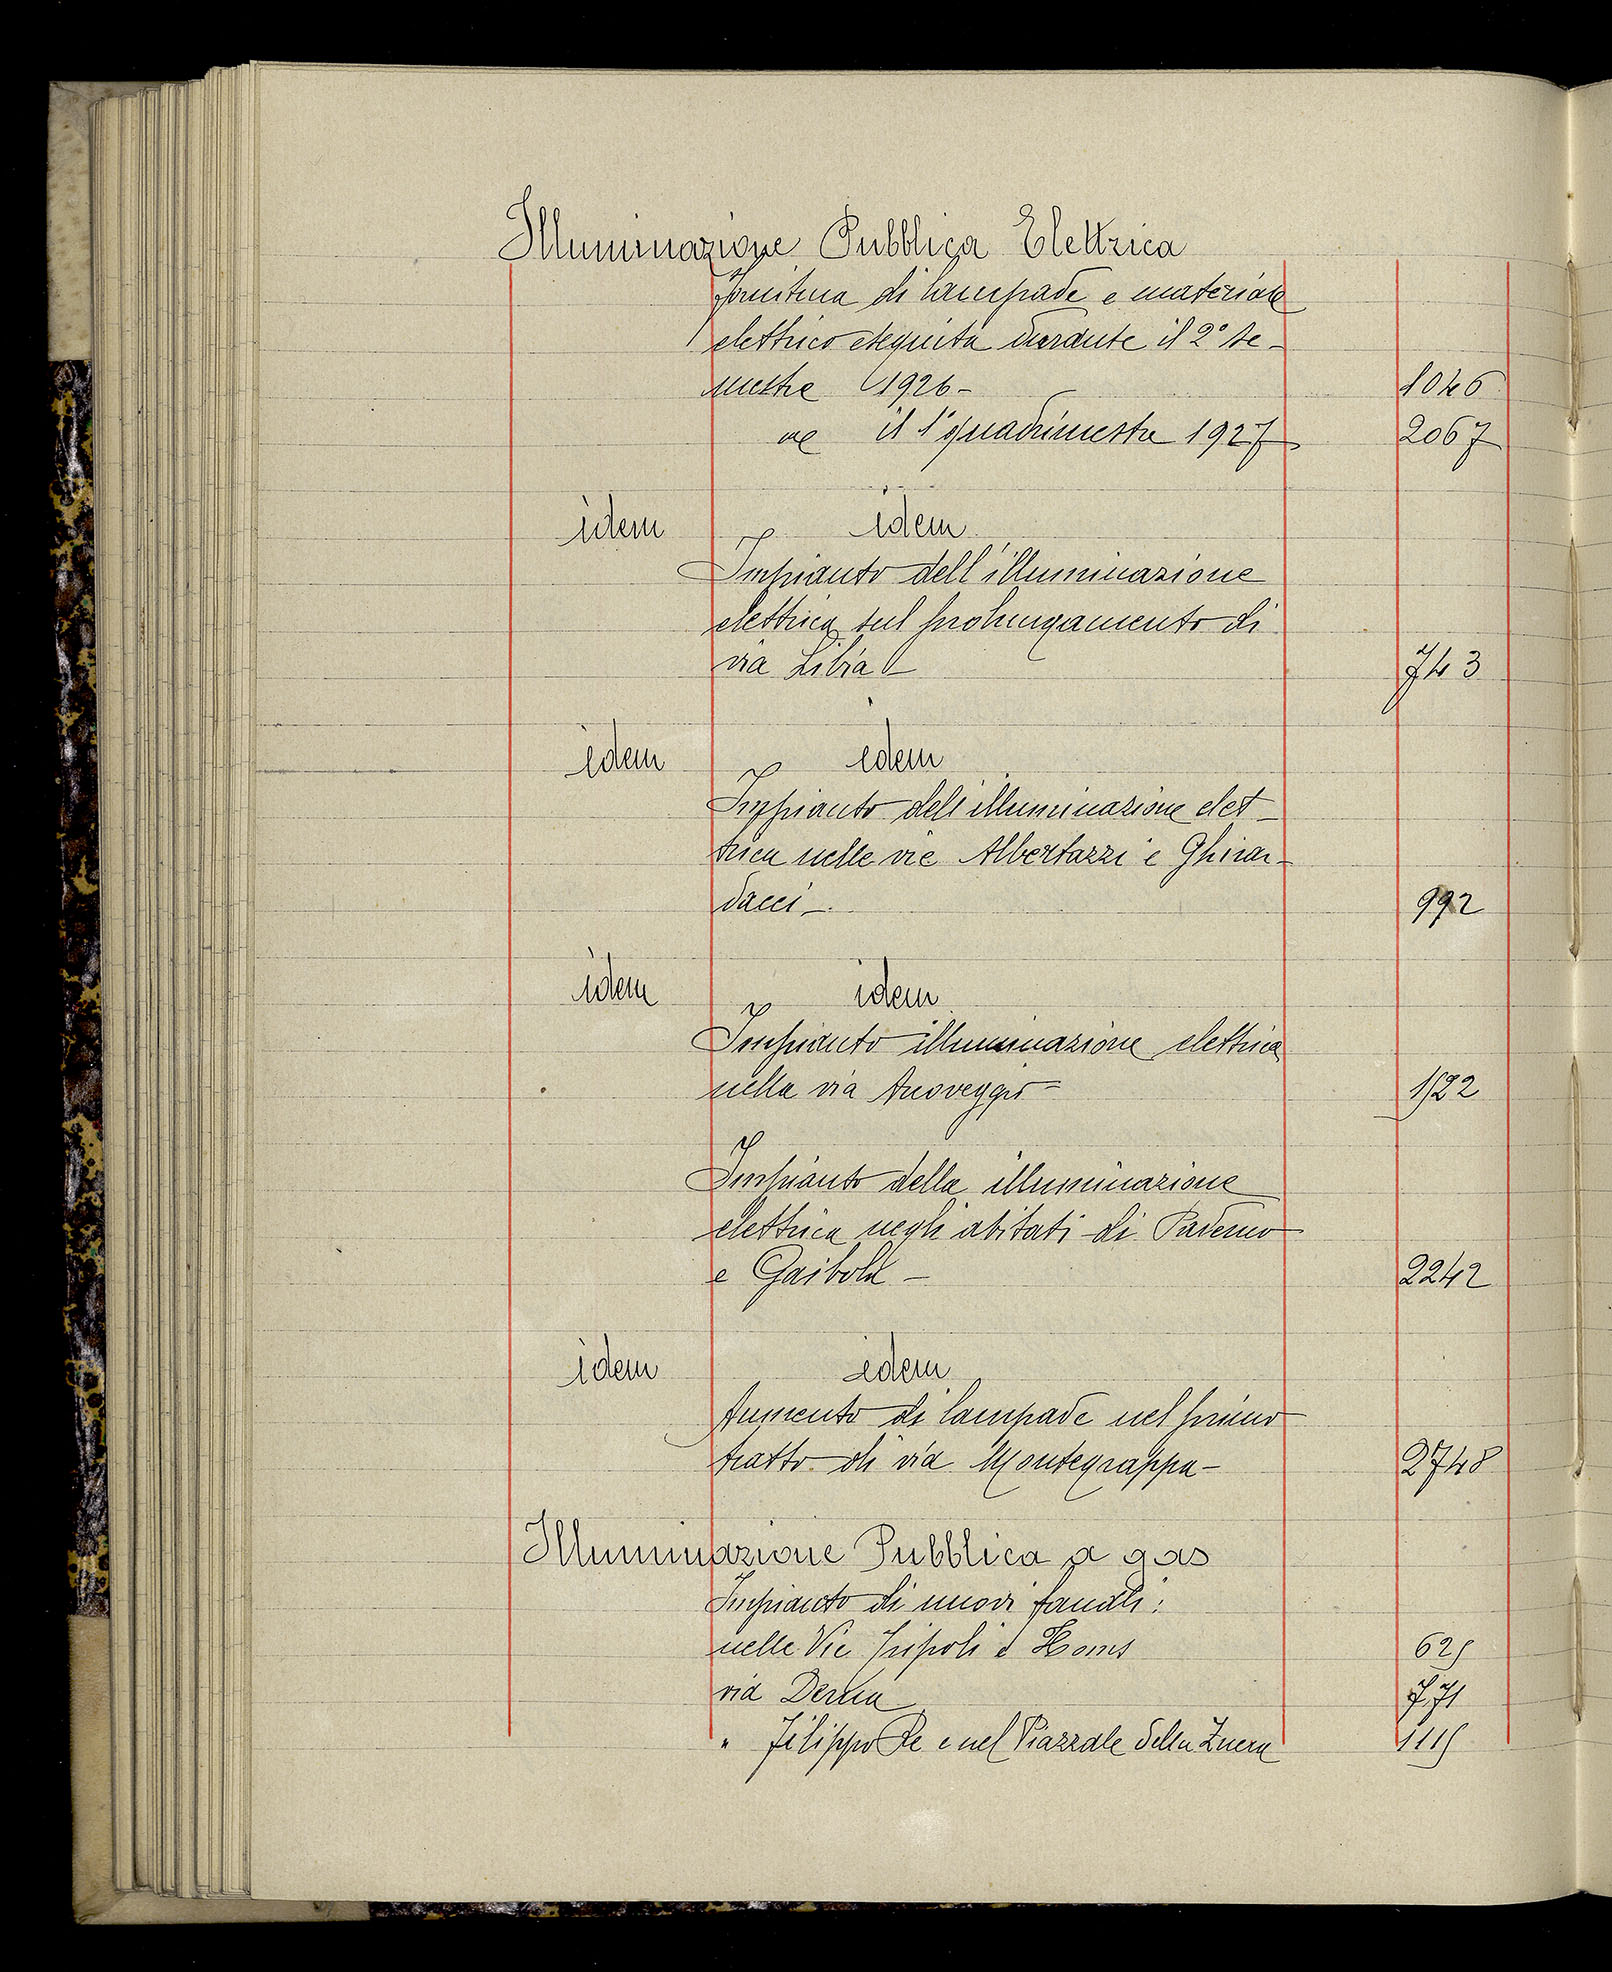 Illuminazione Pubblica Elettrica
Fornitura di lampade e materiale
elettrico eseguita durante il 2° se-
mestre 1926- 1046
il 1° quadrimestre 1927 2067
idem idem
Impianto dell'illuminazione
elettrica sul prolungamento di
via Libia 743
idem idem
Impianto dell'illuminazione elet-
trica nelle vie Albertazzi e Ghirar-
dacci- 992
idem idem
Impianto illuminazione elettrica
nella via Arcoveggio- 1122
Impianto della illuminazione
elettrica negli abitati di Paderno
e Gaibola - 2242
idem idem
Aumento di lampade nel primo
tratto di via Montegrappa- 2748
Illuminazione Pubblica a gas
Impianto di nuovi fanali:
nelle Vie Tripoli e Homs 621
via Derna 771
" Filippo Re e nel Piazzale della 1115